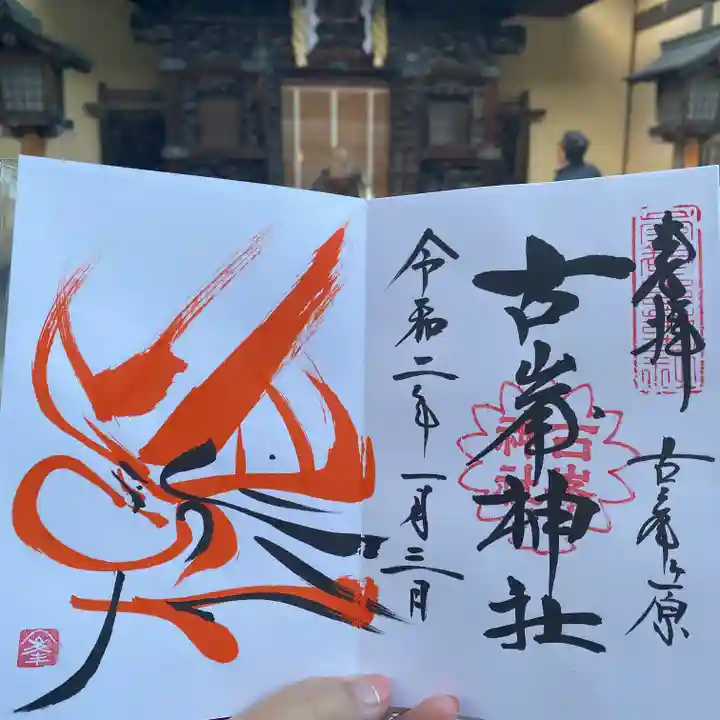 奉拝
古峯ヶ原
古峯神社
古峯神社
令和二年一月三日